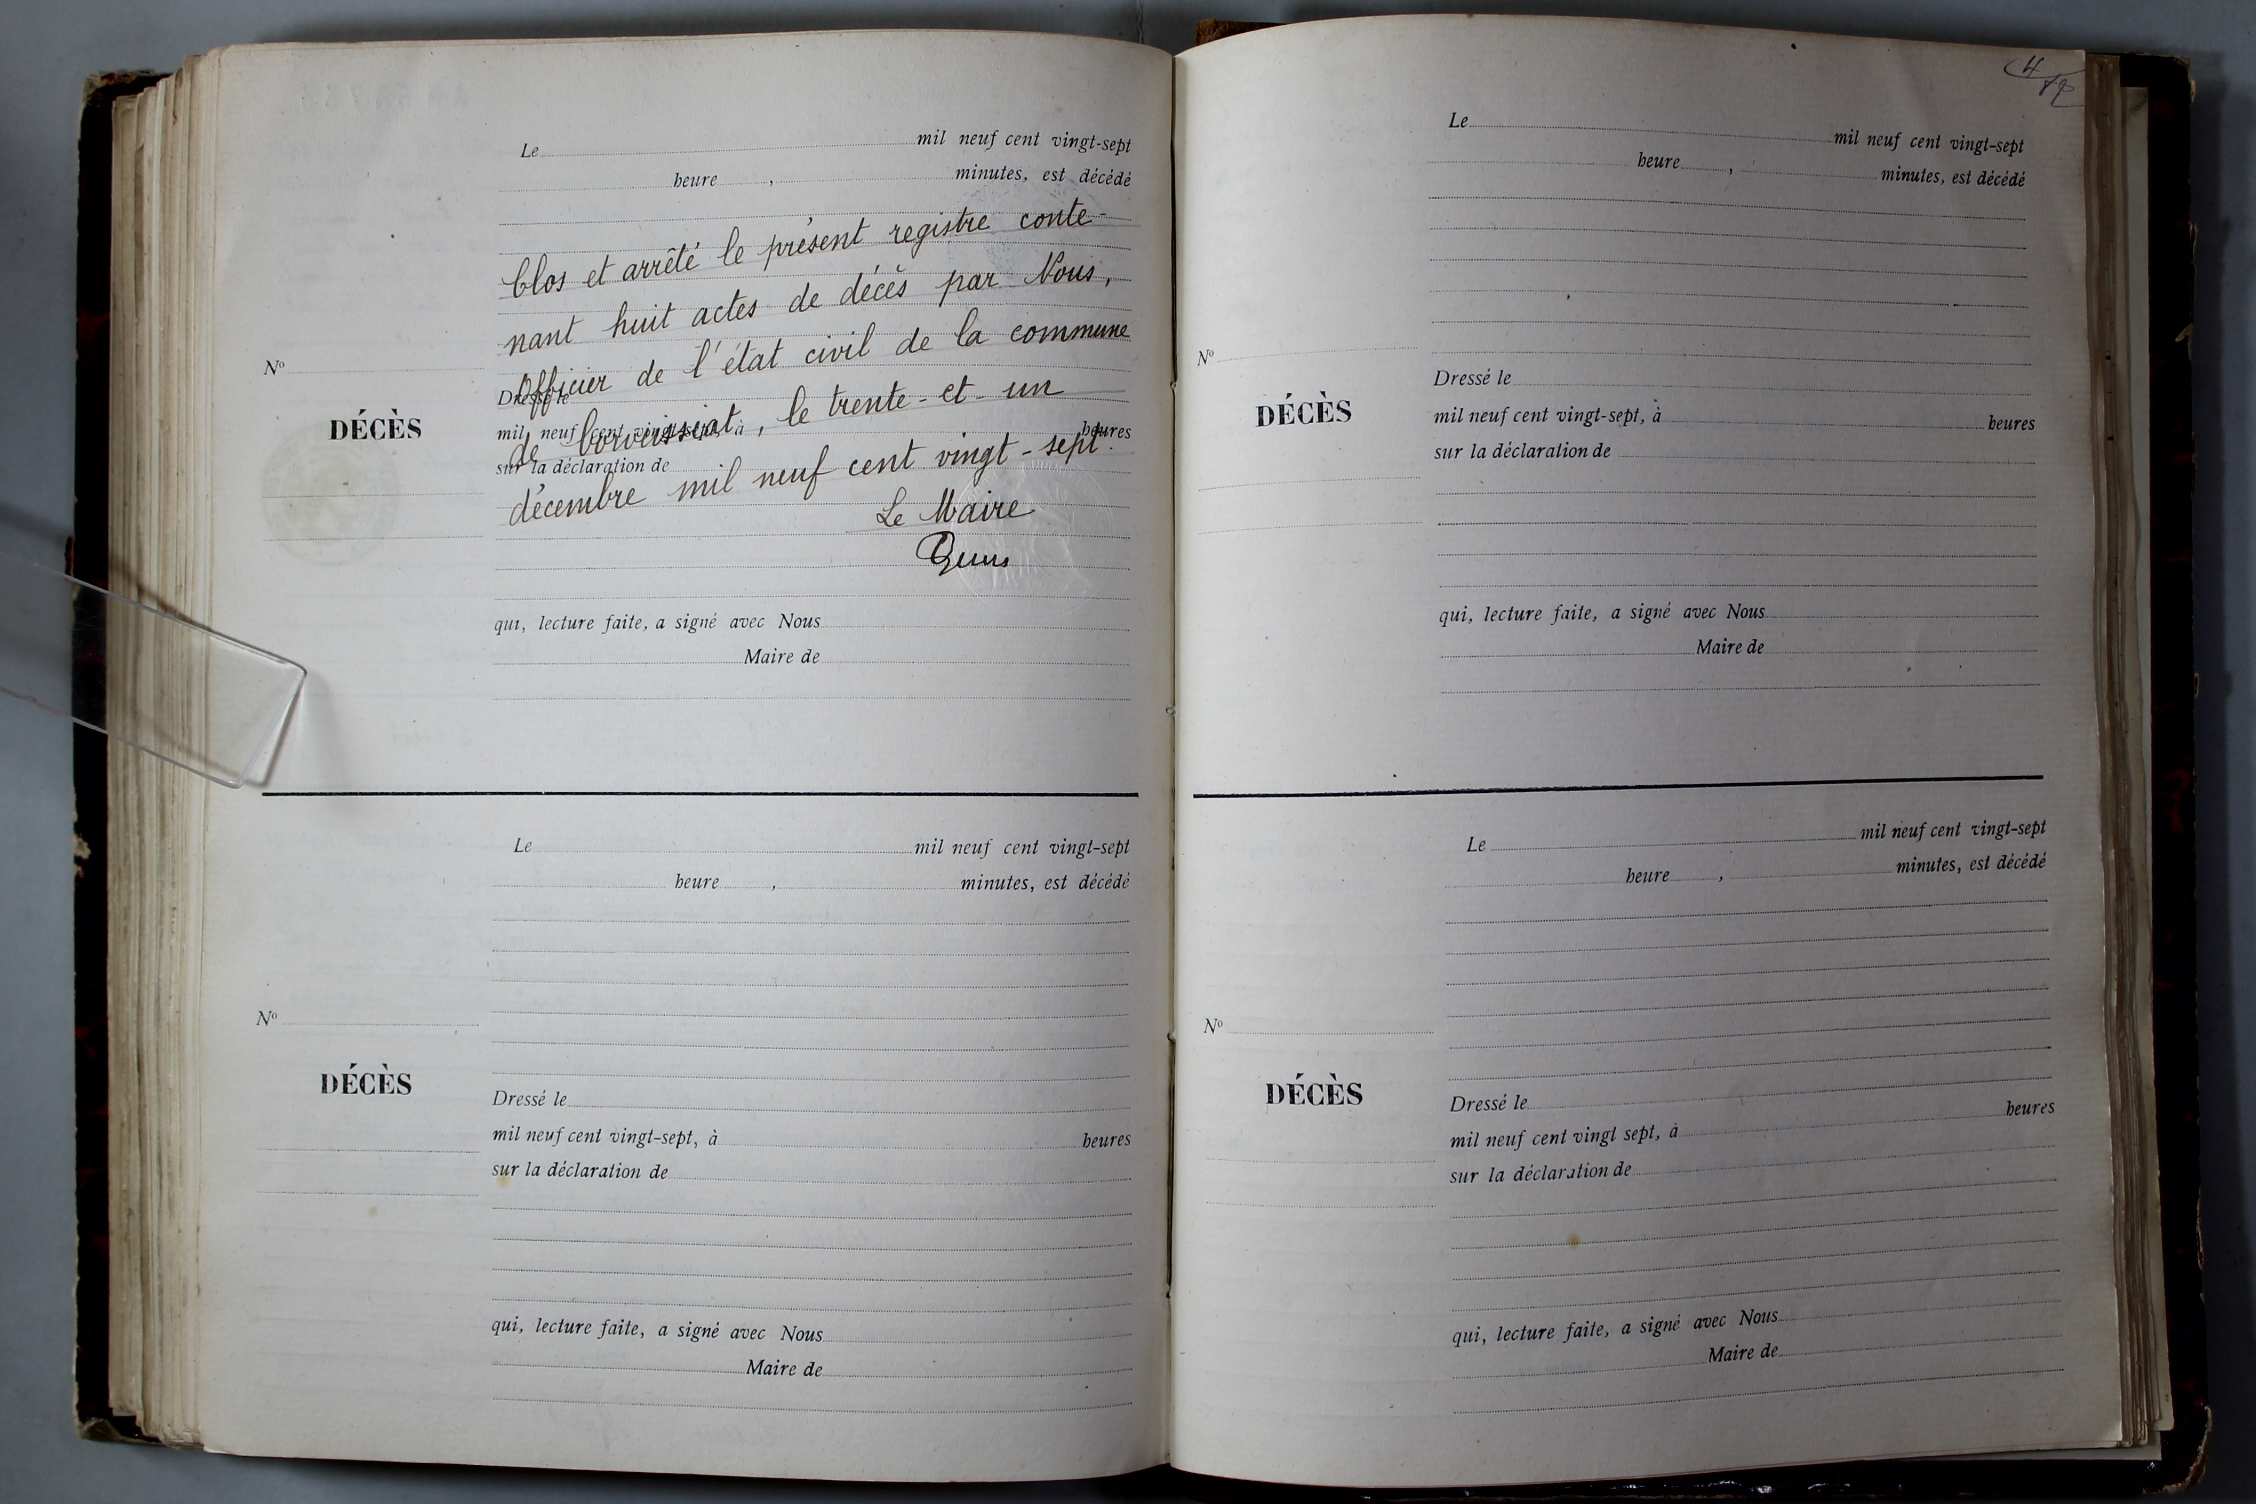 Le mil neuf cent vingt-sept
heure , minutes, est décédé
Clos et arrêté le présent registre conte-
nant huit actes de décès par Nous,
Officier de l'état civil de la commune
de Corveissiat, le trente-et-un
décembre mil neuf cent vingt-sept.
Le Maire
Nº
DÉCÈS
Dressé le
mil neuf cent vingt-sept, à heures
sur la déclaration de
qui, lecture faite, a signé avec Nous
Maire de
Le mil neuf cent vingt-sept
heure , minutes, est décédé
Nº
DÉCÈS
Dressé le
mil neuf cent vingt-sept, à heures
sur la déclaration de
qui, lecture faite, a signé avec Nous
Maire de
4
Le mil neuf cent vingt-sept
heure , minutes, est décédé
Nº
DÉCÈS
Dressé le
mil neuf cent vingt-sept, à heures
sur la déclaration de
qui, lecture faite, a signé avec Nous
Maire de
Le mil neuf cent vingt-sept
heure , minutes, est décédé
Nº
DÉCÈS
Dressé le
mil neuf cent vingt sept, à heures
sur la déclaration de
qui, lecture faite, a signé avec Nous
Maire de